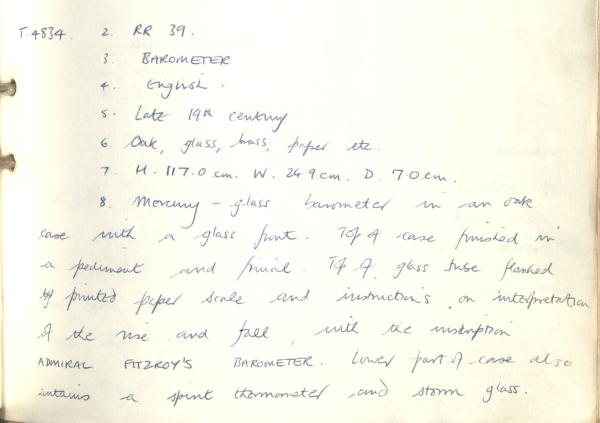 T.4834. 2. RR 39.
3. BAROMETER
4. English.
5. Late 19th century
6. Oak, glass, brass, paper etc.
7. H. 117.0 cm. W. 24.9 cm. D. 7.0 cm.
8. Mercury - glass barometer in an oak
case with a glass front. Top of case finished in
a pediment and finial. Top of glass tube flanked
by printed paper scale and instructions on interpretation
of the rise and fall, with the inscription
ADMIRAL FITZROY'S BAROMETER. Lower part of case also
contains a spirit thermometer and storm glass.